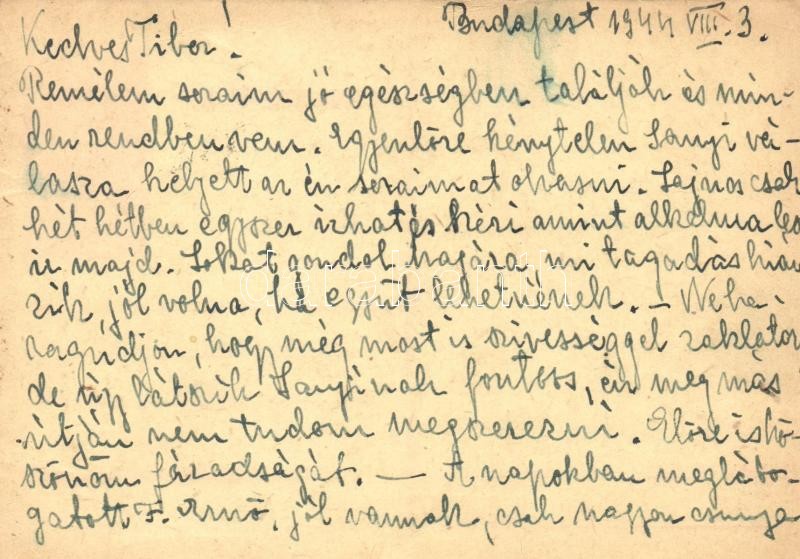 Budapest 1944 VIII. 3.
Kedves Tibor!
Remélem soraim jó egészségben találják és min-
den rendben van. Egyenlőre kénytelen Sanyi vá-
lasza helyett az én soraimat olvasni. Sajnos csak
két hétben egyszer írhat és kéri amint alkalma lesz
ír majd. Sokat gondol magára, mi tagadás hiány-
zik, jól volna, ha együt lehetnének. – Ne ha-
ragudjon, hogy még most is szívességgel zaklatom
de úgy látszik Sanyinak fontos, én meg más
útján nem tudom megszerezni. Előre is kö-
szönöm fáradságát. – A napokban megláto-
gatott F. Ernő, jól vannak, csak nagyon csunya
darabanth